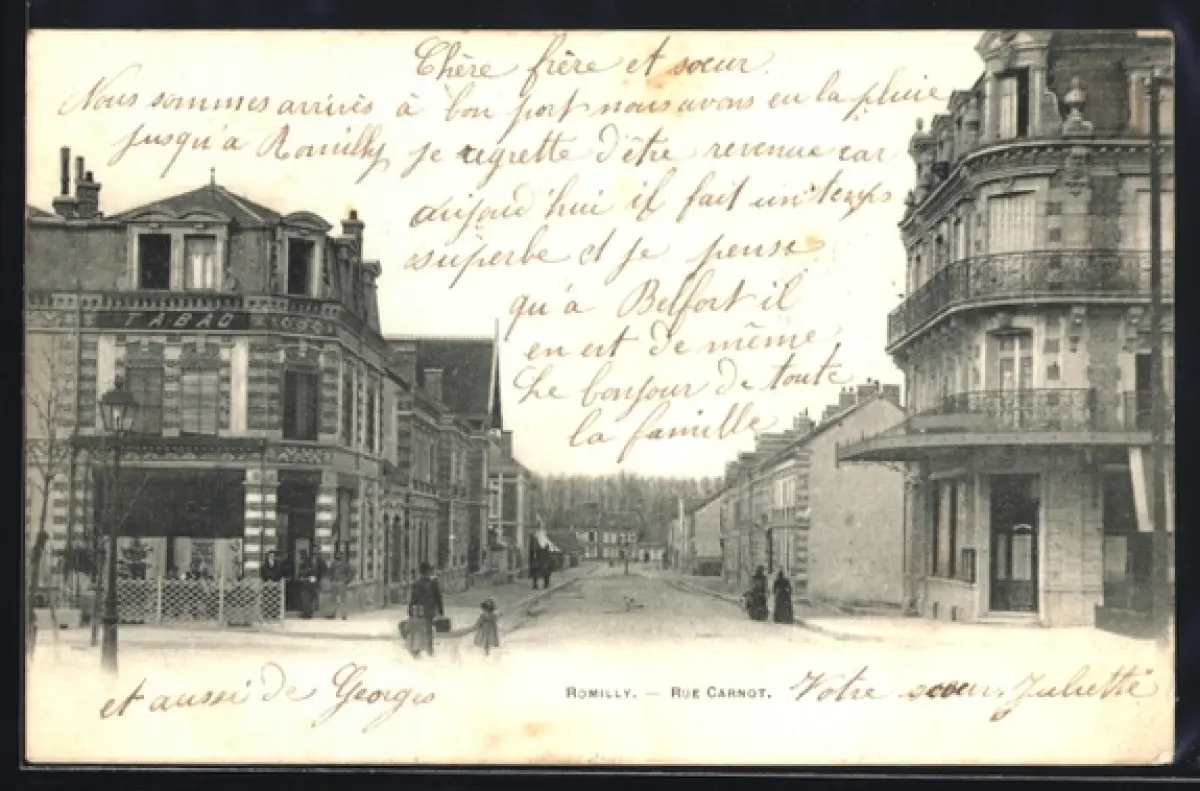 Chère frère et soeur
Nous sommes arrivés à bon port nous avons eu la pluie
jusqu'à Romilly je regrette d'être revenue car
aujourd'hui il fait un temps
superbe et je pense
qu'à Belfort il
en est de même
Le bonjour de toute
la famille
TABAC
et aussi de Georges
ROMILLY. — RUE CARNOT.
Votre soeur Juliette